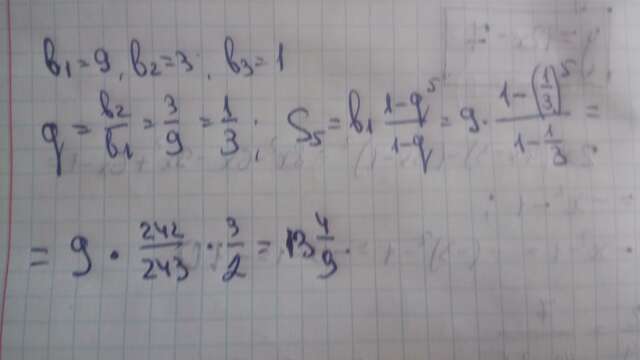 b₁=9, b₂=3, b₃=1
q = b₂/b₁ = 3/9 = 1/3; S₅ = b₁ (1-q⁵)/(1-q) = 9 · (1-(1/3)⁵)/(1-1/3) =
= 9 · 242/243 · 3/2 = 13 4/9.